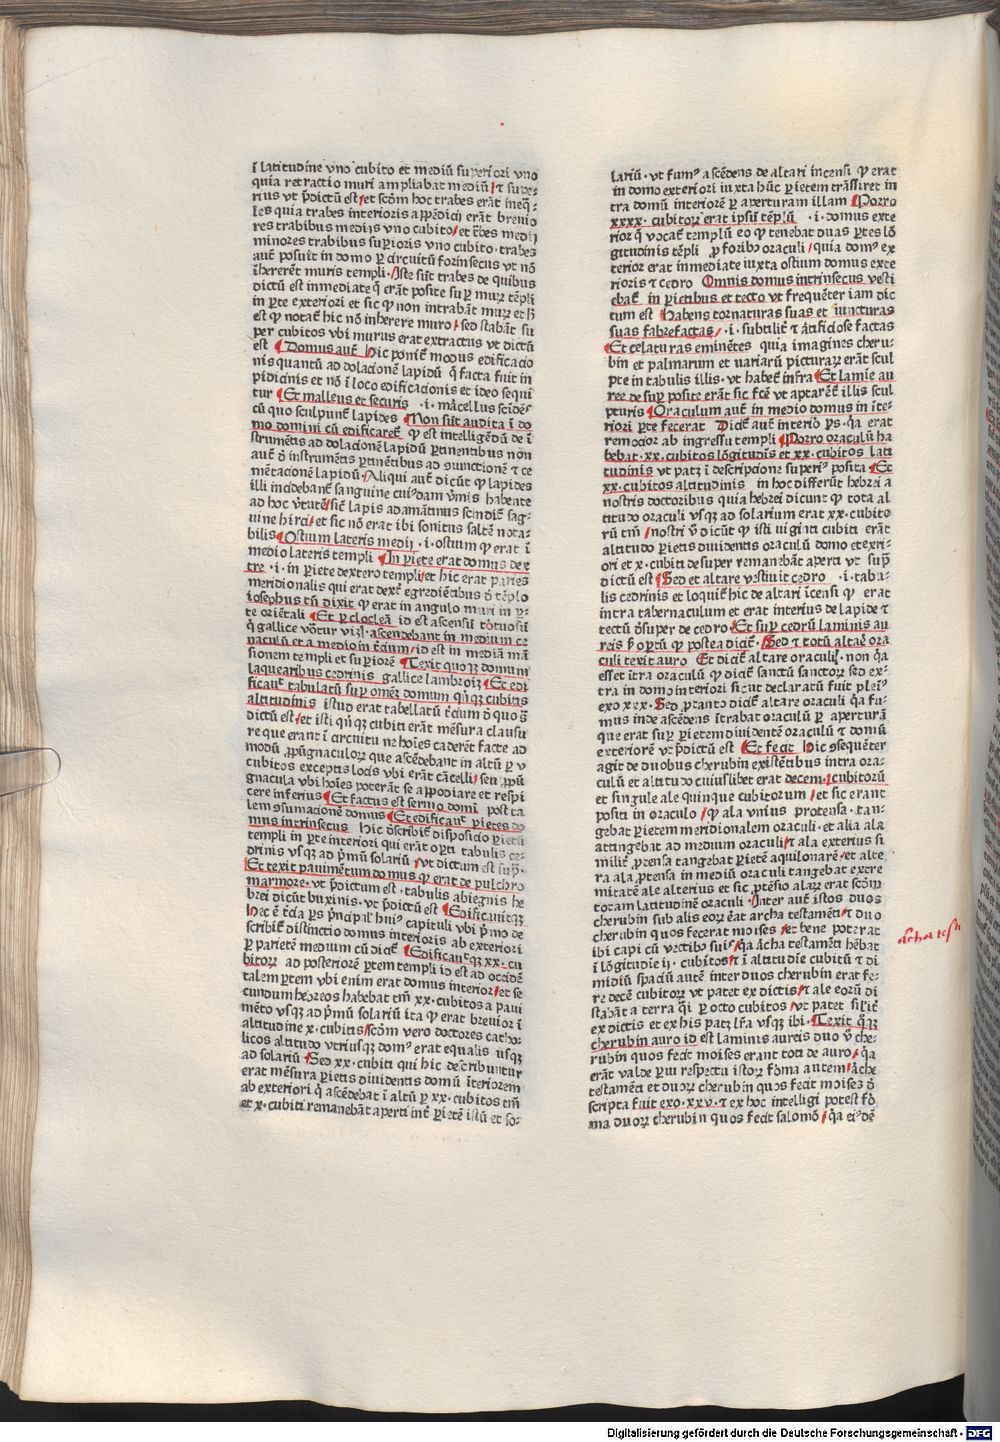 ī latitudine vno cubito et mediū superiori vno
quia retractio muri ampliabat mediū ⁊ supe-
rius vt p̄dictū est et scḋm hoc trabes erāt ineq̄-
les quia trabes interioris app̄ēdicij erāt breuio
res trabibus medijs vno cubito et t̄bes medij
minores trabibus sup̄ioris vno cubito. trabes
aut̄ posuit in domo ꝑ circuitū forinsecus vt nō
īhererēt muris templi. Iste sūt trabes de quibus
dictū est inmediate q̄ erāt posite suꝑ murꝝ tēpli
in ꝑte exteriori et sic ꝙ non intrabāt murꝝ et ħ
est ꝙ notat̄ hic nō inherere muro sed stabāt su
per cubitos vbi murus erat extractus vt dictū
est Domus aut̄ hic ponit̄ modus edificacio
nis quantū ad dolacionē lapidū q̄ facta fuit in
lapidicinis et nō ī loco edificacionis et ideo sequi
tur Et malleus et securis .i. marcellus scidēs
cū quo sculpunt̄ lapides Non sūt audita ī do
mo domini cū edificaret̄ ꝙ est intelligēdū de ī
strumētis ad dolacionē lapidū ꝑtinentibus non
aut̄ ō instrumētis ꝑtinētibus ad ꝯiunctionē ⁊ ce
mētacionē lapidū. Aliqui aut̄ dicūt ꝙ lapides
illi incidebant̄ sanguine cuiꝰdam v̄mis habente
ad hoc v̄tutē sic̄ lapis adamātinus scindit̄ sag-
uine hirci et sic nō erat ibi sonitus saltē nota-
bilis Ostium lateris medij .i. ostium ꝙ erat ī
medio lateris templi In ꝑiete erat domus dex
tre .i. in ꝑiete dextero templi et hic erat paries
meridionalis qui erat dext̄ egrediētibus ō tēplo
iosephus tn̄ dixit ꝙ erat in angulo muri in ꝑ-
te oriētali Et ꝑ clocleā id est ascensū tōtuosū
q̄ gallice vōtur viꝫ. ascendebant in medium ce
naculū et a medio in t̄cium id est in mediā mā
sionem templi et supiorē Texit quoqꝫ domum
laquearibus cedrinis gallice lambroiz Et edi
ficauit tabulatū suꝑ omeꝫ domum qn̄qꝫ cubitis
altitudinis istud erat tabellatū t̄cium ō quo sꝰ
dictū est et isti qn̄qꝫ cubiti erāt mēsura clausu
re que erant ī circuitu ne hoīes caderēt facte ad
modū ꝓpugnaculorꝝ que ascēdebant in altū ꝑ v
cubitos exceptis locis vbi erāt cācelli seu ꝓpū
gnacula vbi hoīes poterāt se appodiare et respi
cere inferius Et factus est sermo domī post ta
lem ꝯsumacionē domus Et edificauit ꝑietes do
mus intrinsecus hic ōscribit̄ disposicio ꝑietū
templi in ꝑte interiori qui erāt oꝑti tabulis ce-
drinis vsqꝫ ad p̄mū solariū vt dictum est suꝑ.
Et texit pauimētum domus ꝙ erat de pulchro
marmore. vt p̄dictum est. tabulis abiegnis he
brei dicūt buxinis. vt p̄dictū est Edificauitqꝫ
hec ē t̄cia ꝑs p̄ncipal̄ huiꝰ capituli vbi p̄mo de
scribit̄ distinctio domus interioris ab exteriori
ꝑ parietē medium cū dicit̄ Edificautqꝫ xx. cu
bitorꝝ ad posteriorē ꝑtem templi id est ad occidē
talem ꝑtem vbi enim erat domus interior et se
cundum hebreos habebat tm̄ xx. cubitos a paui
mēto vsqꝫ ad p̄mū solariū ita ꝙ erat breuior ī
altitudine x. cubitis scḋm vero doctores catho-
licos altitudo vtriusqꝫ domꝰ erat equalis vsqꝫ
ad solariū Sed xx. cubiti qui hic describuntur
erāt mēsura ꝑietis diuidentis domū īteriorem
ab exteriori q̄ ascēdebat ī altū ꝑ xx. cubitos tm̄
et x. cubiti remanebāt aperti int̄ ꝑietē istū et so-
lariū. vt fumꝰ ascēdens de altari incensi ꝙ erat
in domo exteriori iuxta hūc ꝑietem trāssiret in
tra domū interiorē ꝑ aperturam illam Porro
xxxx. cubitorꝝ erat ipsū tēplū .i. domus exte
rior q̄ vocat̄ templū eo ꝙ tenebat duas ꝑtes lō
gitudinis tēpli ꝓ foribꝰ oraculi quia domꝰ ex
terior erat inmediate iuxta ostium domus exte
rioris ⁊ cedro Omnis domus intrinsecus vesti
ebat̄ in ꝑietibus et tecto vt frequēter iam dic
tum est Habens tornaturas suas et iuncturas
suas fabrefactas .i. subtilit̄ ⁊ ātificiose factas
Et celaturas eminētes quia imagines cheru-
bin et palmarum et variarū picturaꝝ erāt scul
pte in tabulis illis. vt habet̄ infra Et lamie au
ree de suꝑ posite erāt sic fcē vt aptarēt̄ illis scul
pturis Oraculum aut̄ in medio domus in īte-
riori ꝑte fecerat Dicit̄ aut̄ interiō ꝑs. q̄a erat
remocior ab ingressu templi Porro oraculū ha
bebat. xx. cubitos lōgitudīs et xx. cubitos lati
tudinis vt patꝫ ī descripcione superiꝰ posita Et
xx. cubitos altitudinis in hoc differūt hebrei a
nostris doctoribus quia hebrei dicunt ꝙ tota al
titudo oraculi vsqꝫ ad solarium erat xx. cubito
rū tm̄ nostri v̄ dicūt ꝙ isti viginti cubiti erāt
altitudo ꝑietis diuidentis oraculū domo etexri-
ori et x. cubiti desuper remanebāt aperti vt supͣ
dictū est Sed et altare vestiuit cedro .i. taba-
lis cedrinis et loquit̄ hic de altari īcensi ꝙ erat
intra tabernaculum et erat interius de lapide ⁊
tectū ōsuper de cedro Et suꝑ cedrū laminis au
reis p̄ oꝑtū ꝙ postea dicit̄. Sed ⁊ totū altaꝛ̄ ora
culi texit auro Et dicit̄ altare oraculi. non q̄a
esset ītra oraculū ꝙ dicit̄ sanctū sanctoꝝ sed ex-
tra in domo interiori sicut declaratū fuit pleīꝰ
exo xxx. Sed ꝓ tanto dicit̄ altare oraculi q̄a fu-
mus inde ascēdens ītrabat oraculū ꝑ aperturā
que erat suꝑ ꝑietem diuidentē oraculū ⁊ domū
exteriorē vt p̄dictū est Et fecit hic ꝯsequēter
agit de duobus cherubin existētibus intra ora-
culū et altitudo cuiuslibet erat decem cubitorū
et singule ale quinque cubitorum et sic erant
positi in oraculo ꝙ ala vnius protensa. tan-
gebat ꝑietem meridionalem oraculi. et alia ala
attangebat ad medium oraculi ⁊ ala exterius si
milit̄ ꝓtensa tangebat ꝑietē aquilonarē et alte
ra ala ꝓtensa in mediū oraculi tangebat extre
mitatē ale alterius et sic ꝓtēsio alaꝝ erat scḋm
totam latitudinē oraculi. Inter aut̄ istos duos
cherubin sub alis eoꝝ erat archa testamēti ⁊ duo
cherubin quos fecerat moises et bene poterat
ibi capi cū vectibꝰ suiꝰ q̄a ācha testamēti hēbat
ī lōgitudīe ij. cubitos ⁊ ī altitudīe cubitū ⁊ di
midiū spaciū autē inter duos cherubin erat fe-
re decē cubitoꝝ vt patet ex dictis ⁊ ale eorū di
stabāt a terra q̄si ꝑ octo cubitos vt patet silit̄
ex dictis et ex his patꝫ lr̄a vsqꝫ ibi. Texit q̄qꝫ
cherubin auro id est laminis aureis duo v̄ che-
rubin quos fecit moises erant toti de auro q̄a
erāt valde ꝑui respectu istoꝝ fōma autem āche
testamēti et duoꝝ cherubin quos fecit moises ō
scripta fuit exo. xxv. ⁊ ex hoc intelligi potest fō
ma duoꝝ cherubin quos fecit salomō q̄a eiꝰdē
Digitalisierung gefördert durch die Deutsche Forschungsgemeinschaft - DFG